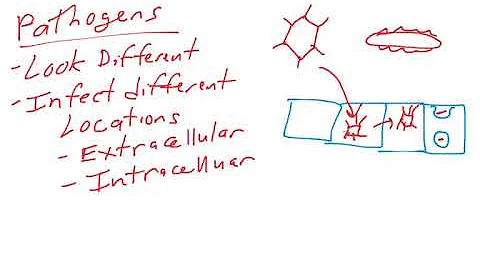 Pathogens
- Look Different
- Infect different
Locations
- Extracellular
- Intracelluar